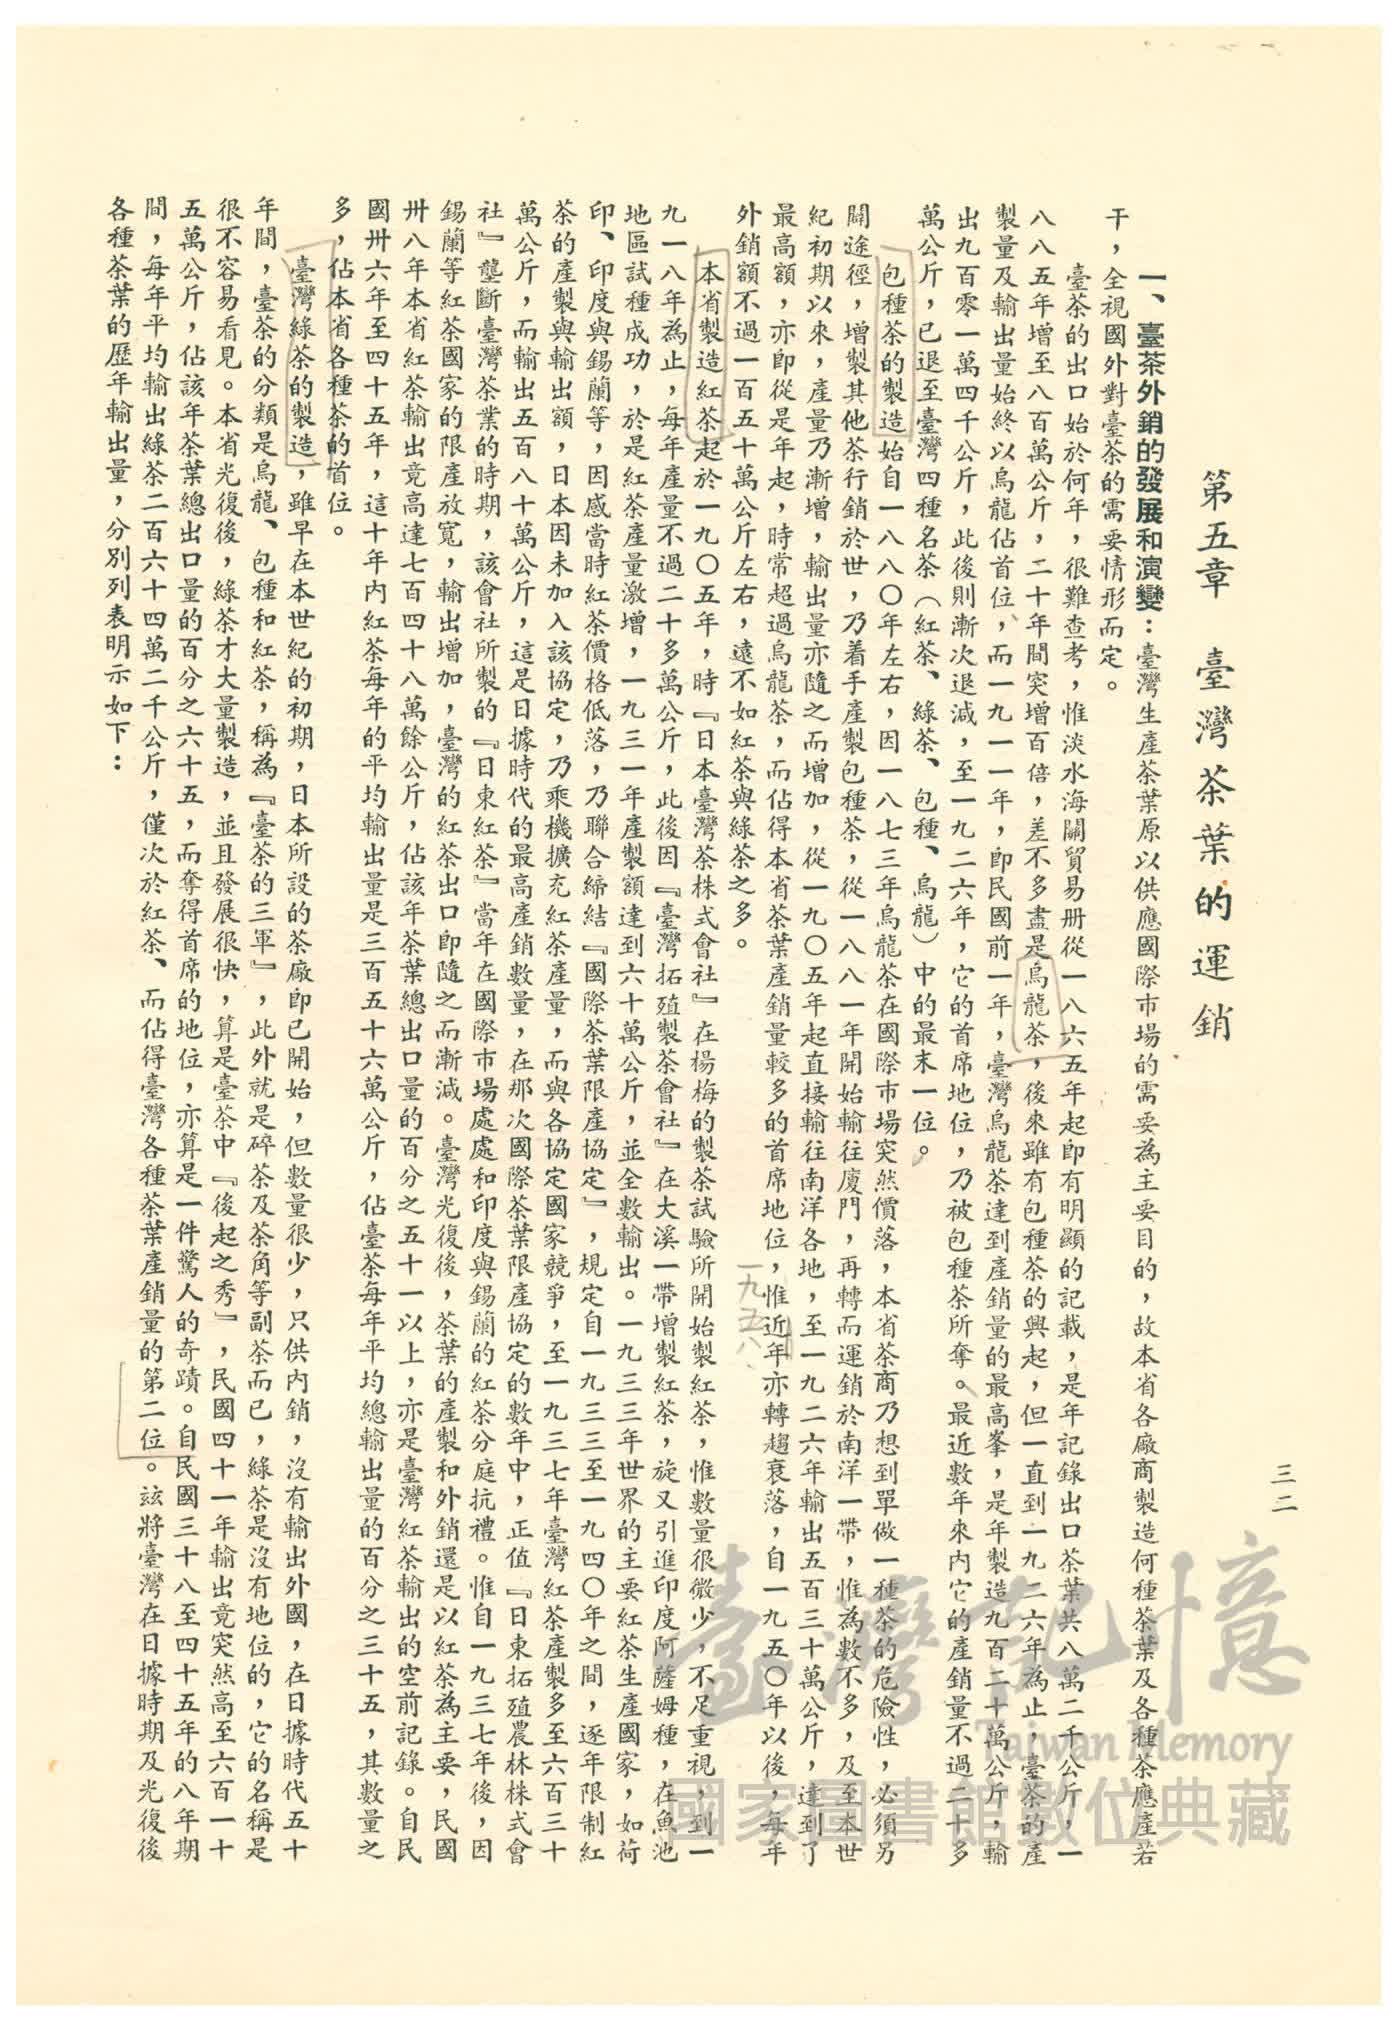 三二
第五章　臺灣茶葉的運銷
一、臺茶外銷的發展和演變：臺灣生產茶葉原以供應國際市場的需要為主要目的，故本省各廠商製造何種茶葉及各種茶應產若
干，全視國外對臺茶的需要情形而定。
臺茶的出口始於何年，很難查考，惟淡水海關貿易册從一八六五年起即有明顯的記載，是年記錄出口茶葉共八萬二千公斤，一
八八五年增至八百萬公斤，二十年間突增百倍，差不多盡是烏龍茶，後來雖有包種茶的興起，但一直到一九二六年為止，臺茶的產
製量及輸出量始終以烏龍佔首位，而一九一一年，即民國前一年，臺灣烏龍茶達到產銷量的最高峯，是年製造九百二十萬公斤，輸
出九百零一萬四千公斤，此後則漸次退減，至一九二六年，它的首席地位，乃被包種茶所奪。最近數年來內它的產銷量不過二十多
萬公斤，已退至臺灣四種名茶（紅茶、綠茶、包種、烏龍）中的最末一位。
包種茶的製造始自一八八〇年左右，因一八七三年烏龍茶在國際市場突然價落，本省茶商乃想到單做一種茶的危險性，必須另
闢途徑，增製其他茶行銷於世，乃着手產製包種茶，從一八八一年開始輸往廈門，再轉而運銷於南洋一帶，惟為數不多，及至本世
紀初期以來，產量乃漸增，輸出量亦隨之而增加，從一九〇五年起直接輸往南洋各地，至一九二六年輸出五百三十萬公斤，達到了
最高額，亦即從是年起，時常超過烏龍茶，而佔得本省茶葉產銷量較多的首席地位，惟近年亦轉趨衰落，自一九五〇年以後，每年
一九五八
外銷額不過一百五十萬公斤左右，遠不如紅茶與綠茶之多。
本省製造紅茶起於一九〇五年，時『日本臺灣茶株式會社』在楊梅的製茶試驗所開始製紅茶，惟數量很微少，不足重視，到一
九一八年為止，每年產量不過二十多萬公斤，此後因『臺灣拓殖製茶會社』在大溪一帶增製紅茶，旋又引進印度阿薩姆種，在魚池
地區試種成功，於是紅茶產量激增，一九三一年產製額達到六十萬公斤，並全數輸出。一九三三年世界的主要紅茶生產國家，如荷
印、印度與錫蘭等，因感當時紅茶價格低落，乃聯合締結『國際茶葉限產協定』，規定自一九三三至一九四〇年之間，逐年限制紅
茶的產製與輸出額，日本因未加入該協定，乃乘機擴充紅茶產量，而與各協定國家競爭，至一九三七年臺灣紅茶產製多至六百三十
萬公斤，而輸出五百八十萬公斤，這是日據時代的最高產銷數量，在那次國際茶葉限產協定的數年中，正值『日東拓殖農林株式會
社』壟斷臺灣茶業的時期，該會社所製的『日東紅茶』當年在國際市場處處和印度與錫蘭的紅茶分庭抗禮。惟自一九三七年後，因
錫蘭等紅茶國家的限產放寬，輸出增加，臺灣的紅茶出口即隨之而漸減。臺灣光復後，茶葉的產製和外銷還是以紅茶為主要，民國
卅八年本省紅茶輸出竟高達七百四十八萬餘公斤，佔該年茶葉總出口量的百分之五十一以上，亦是臺灣紅茶輸出的空前記錄。自民
國卅六年至四十五年，這十年內紅茶每年的平均輸出量是三百五十六萬公斤，佔臺茶每年平均總輸出量的百分之三十五，其數量之
多，佔本省各種茶的首位。
臺灣綠茶的製造，雖早在本世紀的初期，日本所設的茶廠即已開始，但數量很少，只供內銷，沒有輸出外國，在日據時代五十
年間，臺茶的分類是烏龍、包種和紅茶，稱為『臺茶的三軍』，此外就是碎茶及茶角等副茶而已，綠茶是沒有地位的，它的名稱是
很不容易看見。本省光復後，綠茶才大量製造，並且發展很快，算是臺茶中『後起之秀』，民國四十一年輸出竟突然高至六百一十
五萬公斤，佔該年茶葉總出口量的百分之六十五，而奪得首席的地位，亦算是一件驚人的奇蹟。自民國三十八至四十五年的八年期
間，每年平均輸出綠茶二百六十四萬二千公斤，僅次於紅茶、而佔得臺灣各種茶葉產銷量的第二位。玆將臺灣在日據時期及光復後
各種茶葉的歷年輸出量，分別列表明示如下：
臺灣記憶
Taiwan Memory
國家圖書館數位典藏